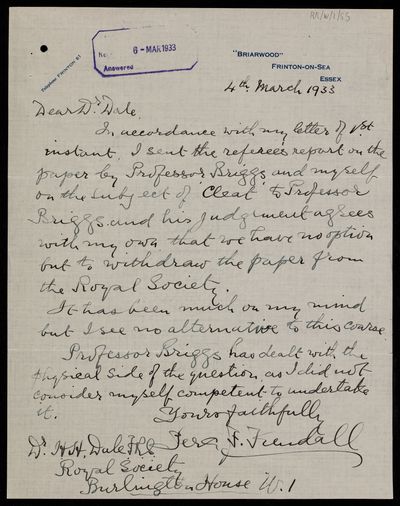 RR/W/1/65
No. 6 - MAR 1933
Answered
Telephone FRINTON 81
"BRIARWOOD"
FRINTON-ON-SEA
ESSEX
4th March 1933
Dear Dr. Dale,
In accordance with my letter of 1st
instant, I sent the referee's report on the
paper by Professor Briggs and myself
on the subject of "Cleat" to Professor
Briggs and his judgement agrees
with my own that we have no option
but to withdraw the paper from
the Royal Society.
It has been much on my mind
but I see no alternative to this coarse
Professor Briggs has dealt with the
physical side of the question, as I did not
consider myself competent to undertake
it.
Yours faithfully
F.
Dr. H.H. Dale F.R.S.
Royal Society
Burlington House W.1